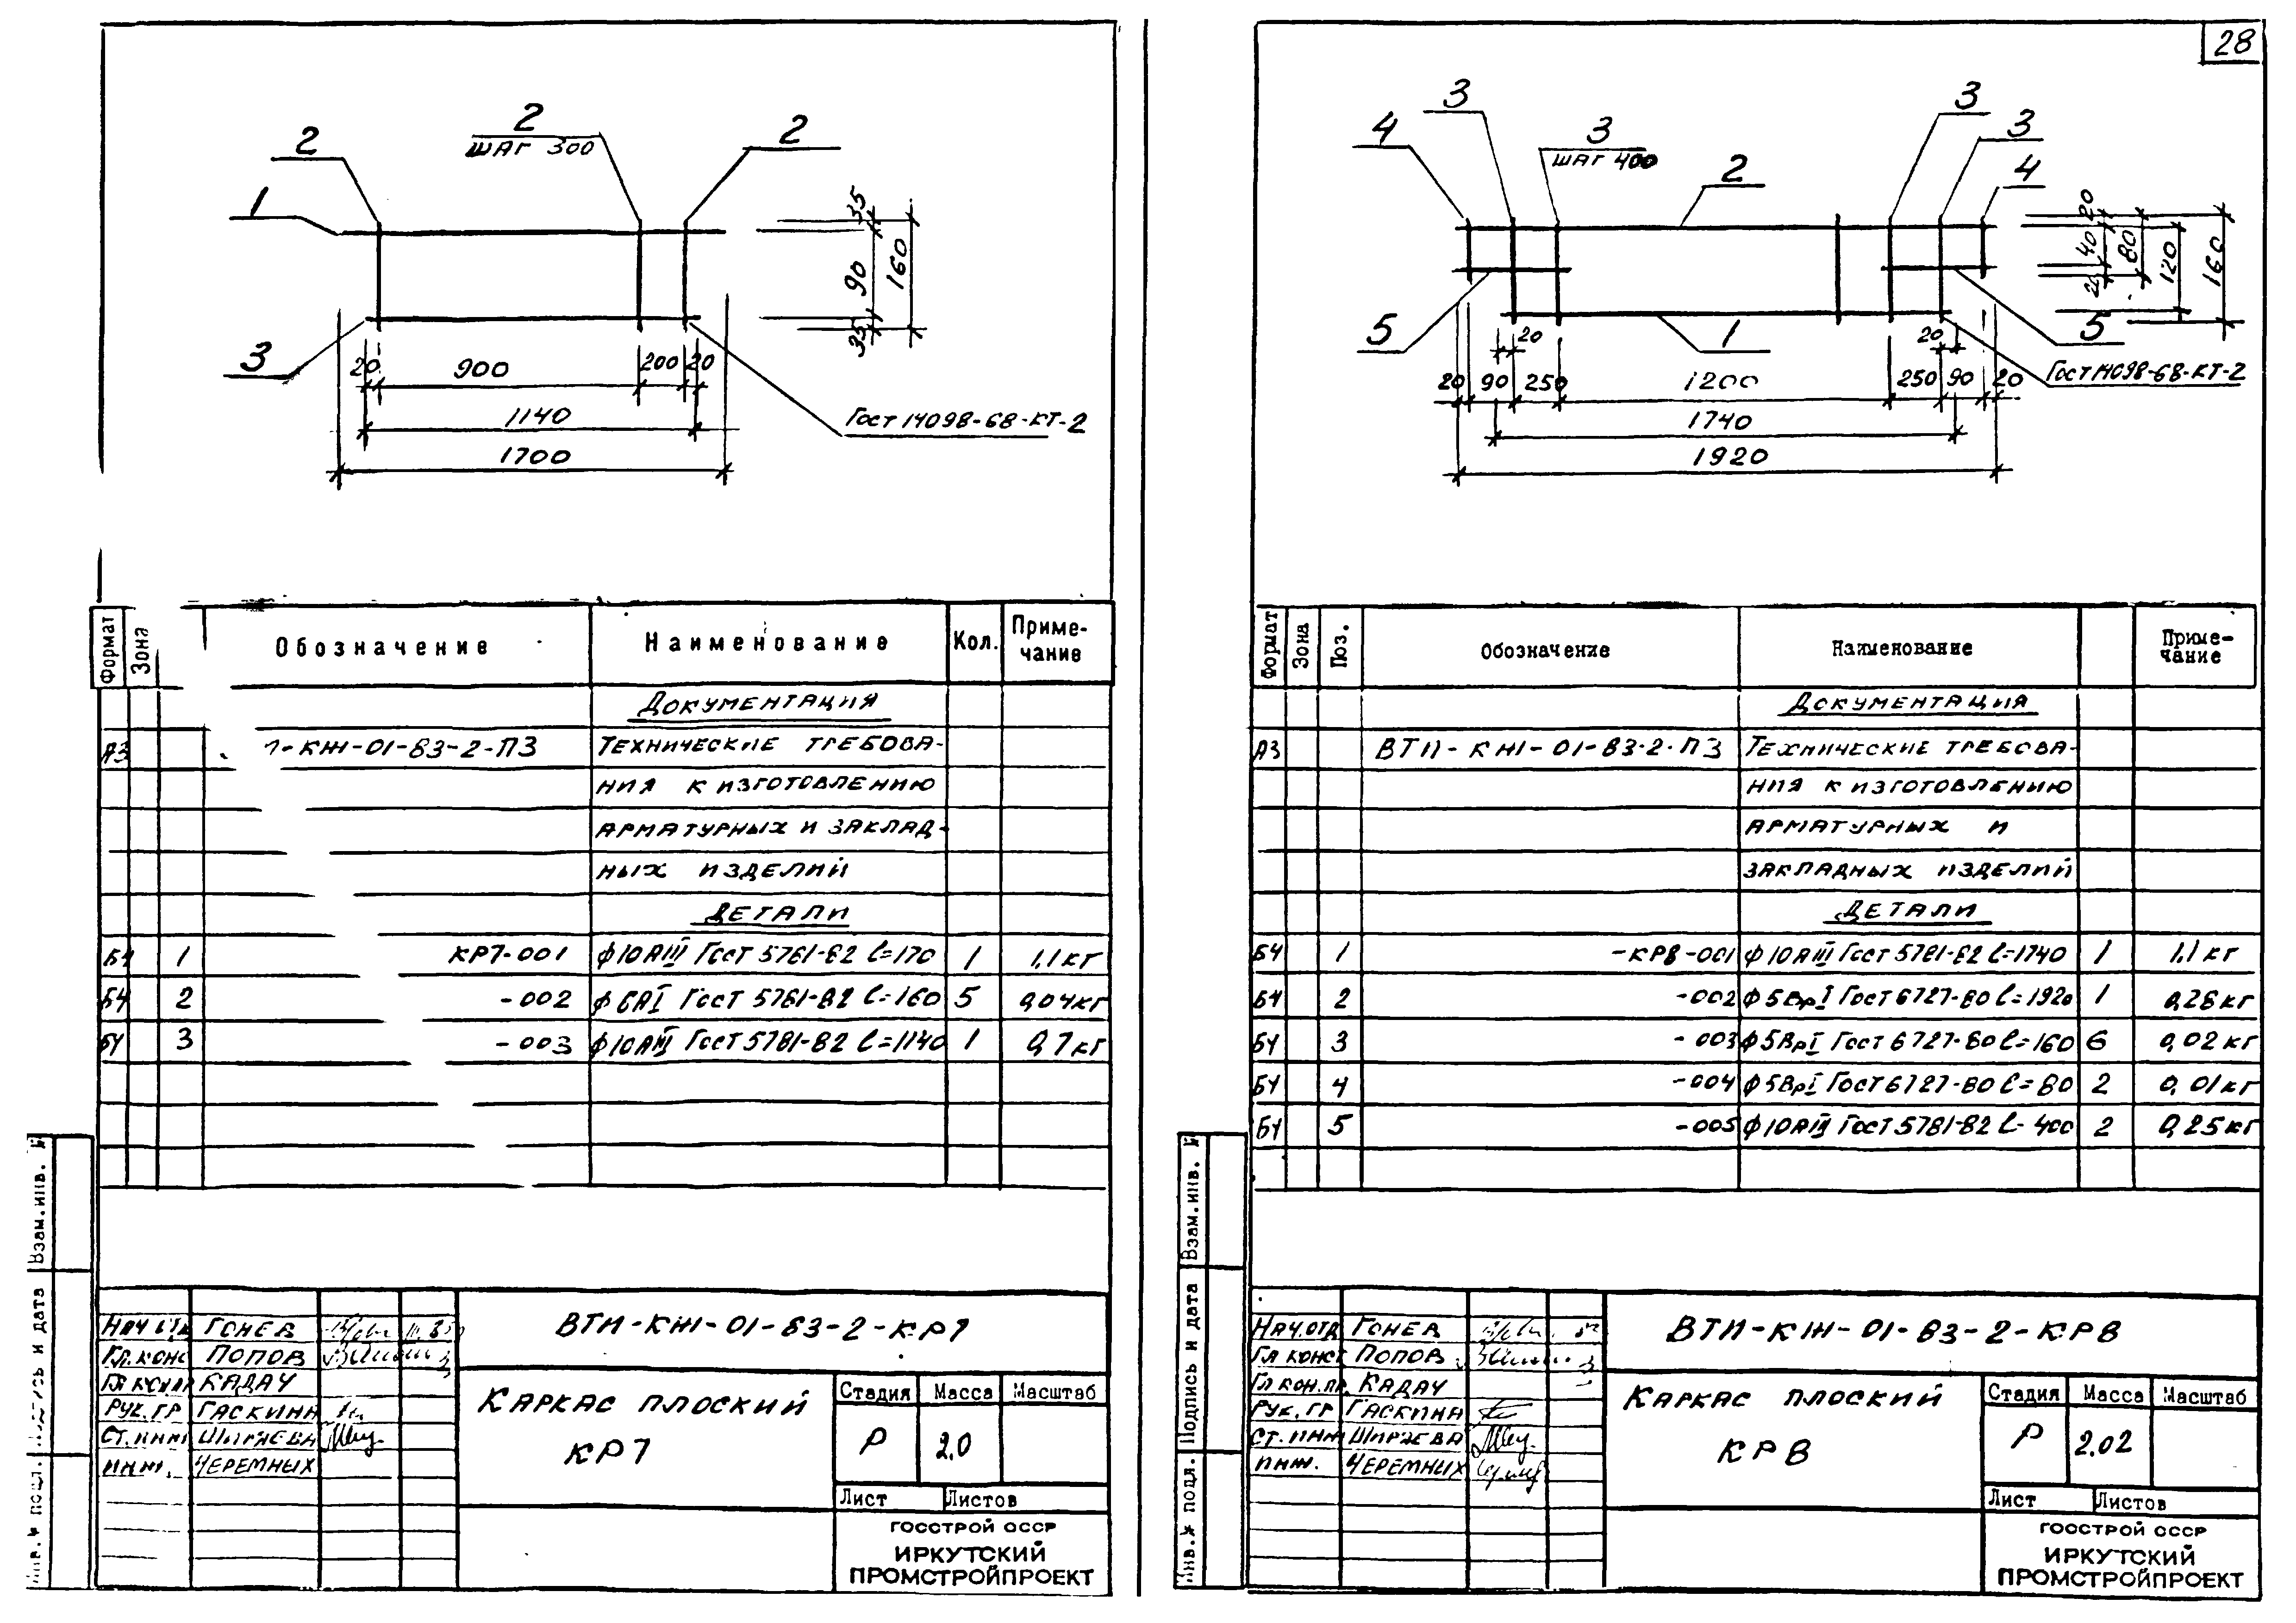 2
2
ШАГ 300
2
1
3
35
90
35
160
20
900
200
20
1140
1700
ГОСТ 14098-68-КТ-2
Формат
Зона
Обозначение
Наименование
Кол.
Приме-
чание
ДОКУМЕНТАЦИЯ
А3
-КЖ-01-83-2-ПЗ
ТЕХНИЧЕСКИЕ ТРЕБОВА-
НИЯ К ИЗГОТОВЛЕНИЮ
АРМАТУРНЫХ И ЗАКЛАД-
НЫХ ИЗДЕЛИЙ
ДЕТАЛИ
БЧ 1 КР7-001 ф10АIII ГОСТ 5781-82 l=170 1 1,1кг
БЧ 2 -002 ф6АI ГОСТ 5781-82 l=160 5 0,04кг
БЧ 3 -003 ф10АIII ГОСТ 5781-82 l=1140 1 0,7кг
Взам.инв. №
и дата
Инв.№ подл.
НАЧ ОТД ГОНЕВ
ГЛ.КОНС ПОПОВ
КАДАЧ
РУК.ГР ГАСКИНА
СТ.ИНЖ ШИРЯЕВА
ИНЖ. ЧЕРЕМНЫХ
ВТП-КЖ-01-83-2-КР7
КАРКАС ПЛОСКИЙ
КР7
Стадия Масса Масштаб
Р 2,0
Лист Листов
ГОССТРОЙ СССР
ИРКУТСКИЙ
ПРОМСТРОЙПРОЕКТ
28
3
4
3
ШАГ 400
2
3
3
4
5
1
5
20
40
20
80
120
160
20
20
20
90
250
1200
250
90
20
1740
1920
ГОСТ 14098-68-КТ-2
Формат
Зона
Поз.
Обозначение
Наименование
Приме-
чание
ДОКУМЕНТАЦИЯ
А3 ВТП-КЖ-01-83-2-ПЗ ТЕХНИЧЕСКИЕ ТРЕБОВА-
НИЯ К ИЗГОТОВЛЕНИЮ
АРМАТУРНЫХ И
ЗАКЛАДНЫХ ИЗДЕЛИЙ
ДЕТАЛИ
БЧ 1 -КР8-001 ф10АIII ГОСТ 5781-82 l=1740 1 1,1кг
БЧ 2 -002 ф5ВрI ГОСТ 6727-80 l=1920 1 0,28кг
БЧ 3 -003 ф5ВрI ГОСТ 6727-80 l=160 6 0,02кг
БЧ 4 -004 ф5ВрI ГОСТ 6727-80 l=80 2 0,01кг
БЧ 5 -005 ф10АIII ГОСТ 5781-82 l-400 2 0,25кг
Взам.инв. №
Подпись и дата
Инв.№ подл.
НАЧ.ОТД ГОНЕВ
ГЛ КОНСТ ПОПОВ
ГЛ КОН.ПР. КАДАЧ
РУК.ГР ГАСКИНА
СТ.ИНЖ ШИРЯЕВА
ИНЖ. ЧЕРЕМНЫХ
ВТП-КЖ-01-83-2-КР8
КАРКАС ПЛОСКИЙ
КР8
Стадия Масса Масштаб
Р 2,02
Лист Листов
ГОССТРОЙ СССР
ИРКУТСКИЙ
ПРОМСТРОЙПРОЕКТ